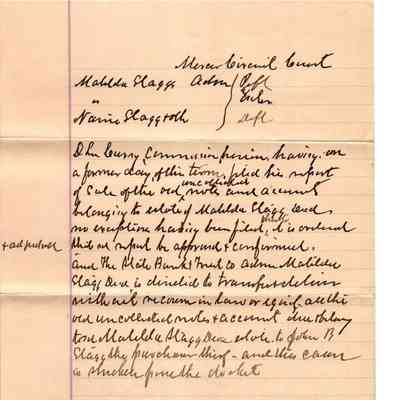 Mercer Circuit Court
Matilda Slaggs Adm Plff
"
Nannie Slagg &oth Deft
D Lin Curry Commissioner having on
a former day of this term, filed his report
of Sale of the old uncollected notes and account
belonging to estate of Matilda Slagg decd
no exceptions having been filed thereto, it is ordered
that sd report be approved & confirmed.
And the State Bank & Trust Co admr Matilda
Slagg Decd is directed to transfer & deliver
without recourse in law or equity all the
old uncollected notes & account due & belong
to sd Matilda Slagg Decd estate to John B
Slagg the purchaser thereof - and this cause
is stricken from the docket